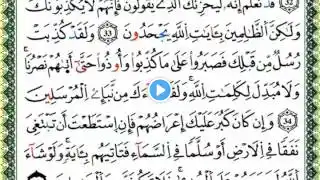 32 قَدْ نَعْلَمُ إِنَّهُۥ لَيُحْزِنُكَ اَ۬لذِے يَقُولُونَ فَإِنَّهُمْ لَا يُكْذِبُونَكَ
وَلَٰكِنَّ اَ۬لظَّٰلِمِينَ بِـَٔايَٰتِ اِ۬للَّهِ يَجْحَدُونَ 33 وَلَقَدْ كُذِّبَتْ
رُسُلٌ مِّن قَبْلِكَ فَصَبَرُواْ عَلَىٰ مَا كُذِّبُواْ وَأُوذُواْ حَتَّىٰٓ أَتَىٰهُمْ نَصْرُنَا
وَلَا مُبَدِّلَ لِكَلِمَٰتِ اِ۬للَّهِ وَلَقَدْ جَآءَكَ مِن نَّبَإِےْ اِ۬لْمُرْسَلِينَ
34 وَإِن كَانَ كَبُرَ عَلَيْكَ إِعْرَاضُهُمْ فَإِنِ اِ۪سْتَطَعْتَ أَن تَبْتَغِيَ
نَفَقاً فِے اِ۬لَارْضِ أَوْ سُلَّماً فِے اِ۬لسَّمَآءِ فَتَاتِيَهُم بِـَٔايَةٍ وَلَوْ شَآءَ